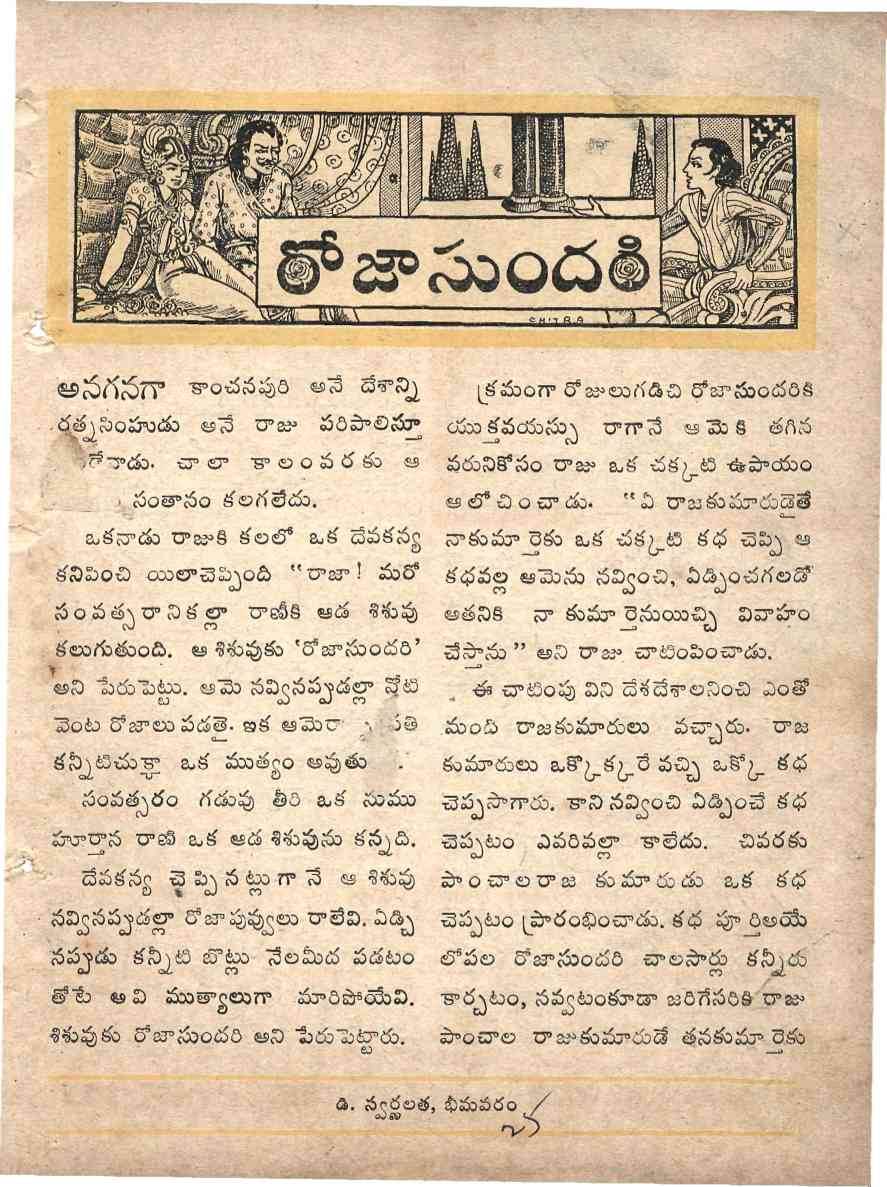 రోజాసుందరి
CHITRA
అనగనగా కాంచనపురి అనే దేశాన్ని
రత్నసింహుడు అనే రాజు పరిపాలిస్తూ
చాలా కాలంవరకు ఆ
సంతానం కలగలేదు.
ఒకనాడు రాజుకి కలలో ఒక దేవకన్య
కనిపించి యిలాచెప్పింది "రాజా! మరో
సంవత్సరానికల్లా రాణీకి ఆడ శిశువు
కలుగుతుంది. ఆ శిశువుకు 'రోజాసుందరి'
అని పేరుపెట్టు. ఆమె నవ్వినప్పుడల్లా నోటి
వెంట రోజాలు పడతై. ఇక ఆమెరా
కన్నీటిచుక్కా ఒక ముత్యం అవుతు
సంవత్సరం గడువు తీరి ఒక సుము
హూర్తాన రాణి ఒక ఆడ శిశువును కన్నది.
దేవకన్య చెప్పినట్లుగానే ఆ శిశువు
నవ్వినప్పుడల్లా రోజాపువ్వులు రాలేవి. ఏడ్చి
నప్పుడు కన్నీటి బొట్లు నేలమీద పడటం
తోటే అవి ముత్యాలుగా మారిపోయేవి.
శిశువుకు రోజాసుందరి అని పేరుపెట్టారు.
క్రమంగా రోజులుగడిచి రోజాసుందరికి
యుక్తవయస్సు రాగానే ఆమెకి తగిన
వరునికోసం రాజు ఒక చక్కటి ఉపాయం
ఆలోచించాడు. "ఏ రాజకుమారుడైతే
నాకుమార్తెకు ఒక చక్కటి కధ చెప్పి ఆ
కధవల్ల ఆమెను నవ్వించి, ఏడ్పించగలడో
అతనికి నా కుమార్తెనుయిచ్చి వివాహం
చేస్తాను" అని రాజు చాటింపించాడు.
ఈ చాటింపు విని దేశదేశాలనించి ఎంతో
మంది రాజకుమారులు వచ్చారు. రాజ
కుమారులు ఒక్కొక్కరే వచ్చి ఒక్కో కధ
చెప్పసాగారు. కాని నవ్వించి ఏడ్పించే కధ
చెప్పటం ఎవరివల్లా కాలేదు. చివరకు
పాంచాలరాజ కుమారుడు ఒక కధ
చెప్పటం ప్రారంభించాడు. కధ పూర్తిఅయే
లోపల రోజాసుందరి చాలసార్లు కన్నీరు
కార్చటం, నవ్వటంకూడా జరిగేసరికి రాజు
పాంచాల రాజకుమారుడే తనకుమార్తెకు
డి. స్వర్ణలత, భీమవరం